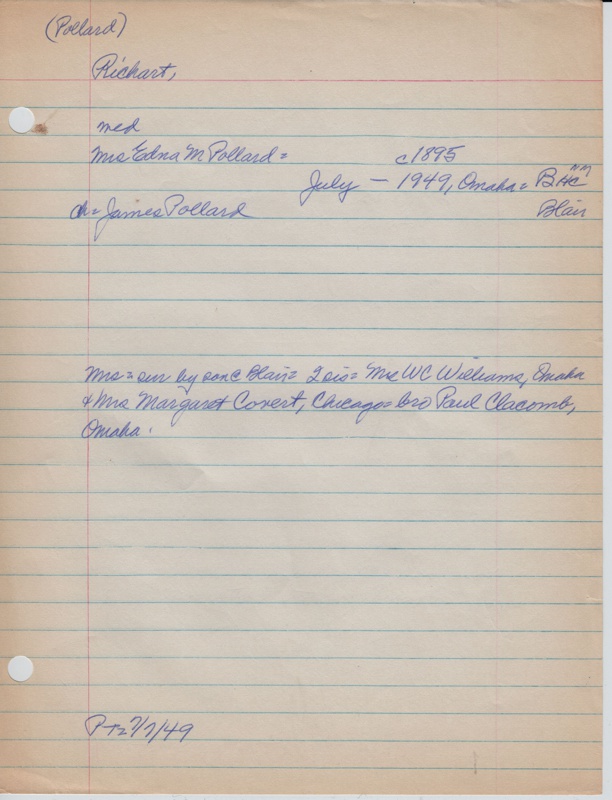 (Pollard)
Richart,
med
Mrs Edna M Pollard =
c1895
July — 1949, Omaha = BHC
Blair
ch = James Pollard
Mrs = sur by son C Blair = 2 sis = Mrs WC Williams, Omaha
& Mrs Margaret Covert, Chicago = bro Paul Clacomb,
Omaha.
P-T = 7/7/49